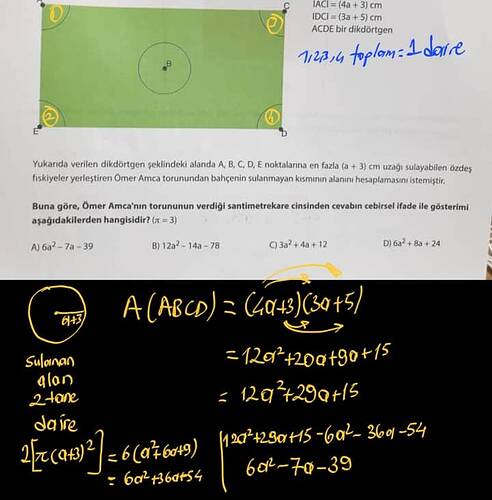 C
|AC| = (4a + 3) cm
|DC| = (3a + 5) cm
ACDE bir dikdörtgen
1 3
1,2,3,4 toplam = 1 daire
B
2 4
E D
Yukarıda verilen dikdörtgen şeklindeki alanda A, B, C, D, E noktalarına en fazla (a + 3) cm uzağı sulayabilen özdeş
fıskiyeler yerleştiren Ömer Amca torunundan bahçenin sulanmayan kısmının alanını hesaplamasını istemiştir.
Buna göre, Ömer Amca'nın torununun verdiği santimetrekare cinsinden cevabın cebirsel ifade ile gösterimi
aşağıdakilerden hangisidir? (π = 3)
A) 6a² – 7a – 39 B) 12a² – 14a – 78 C) 3a² + 4a + 12 D) 6a² + 8a + 24
a+3
A(ABCD) = (4a+3)(3a+5)
= 12a²+20a+9a+15
= 12a²+29a+15
Sulanan
alan
2 tane
daire
2[π(a+3)²] = 6(a²+6a+9)
= 6a²+36a+54
12a²+29a+15-6a²-36a-54
6a²-7a-39